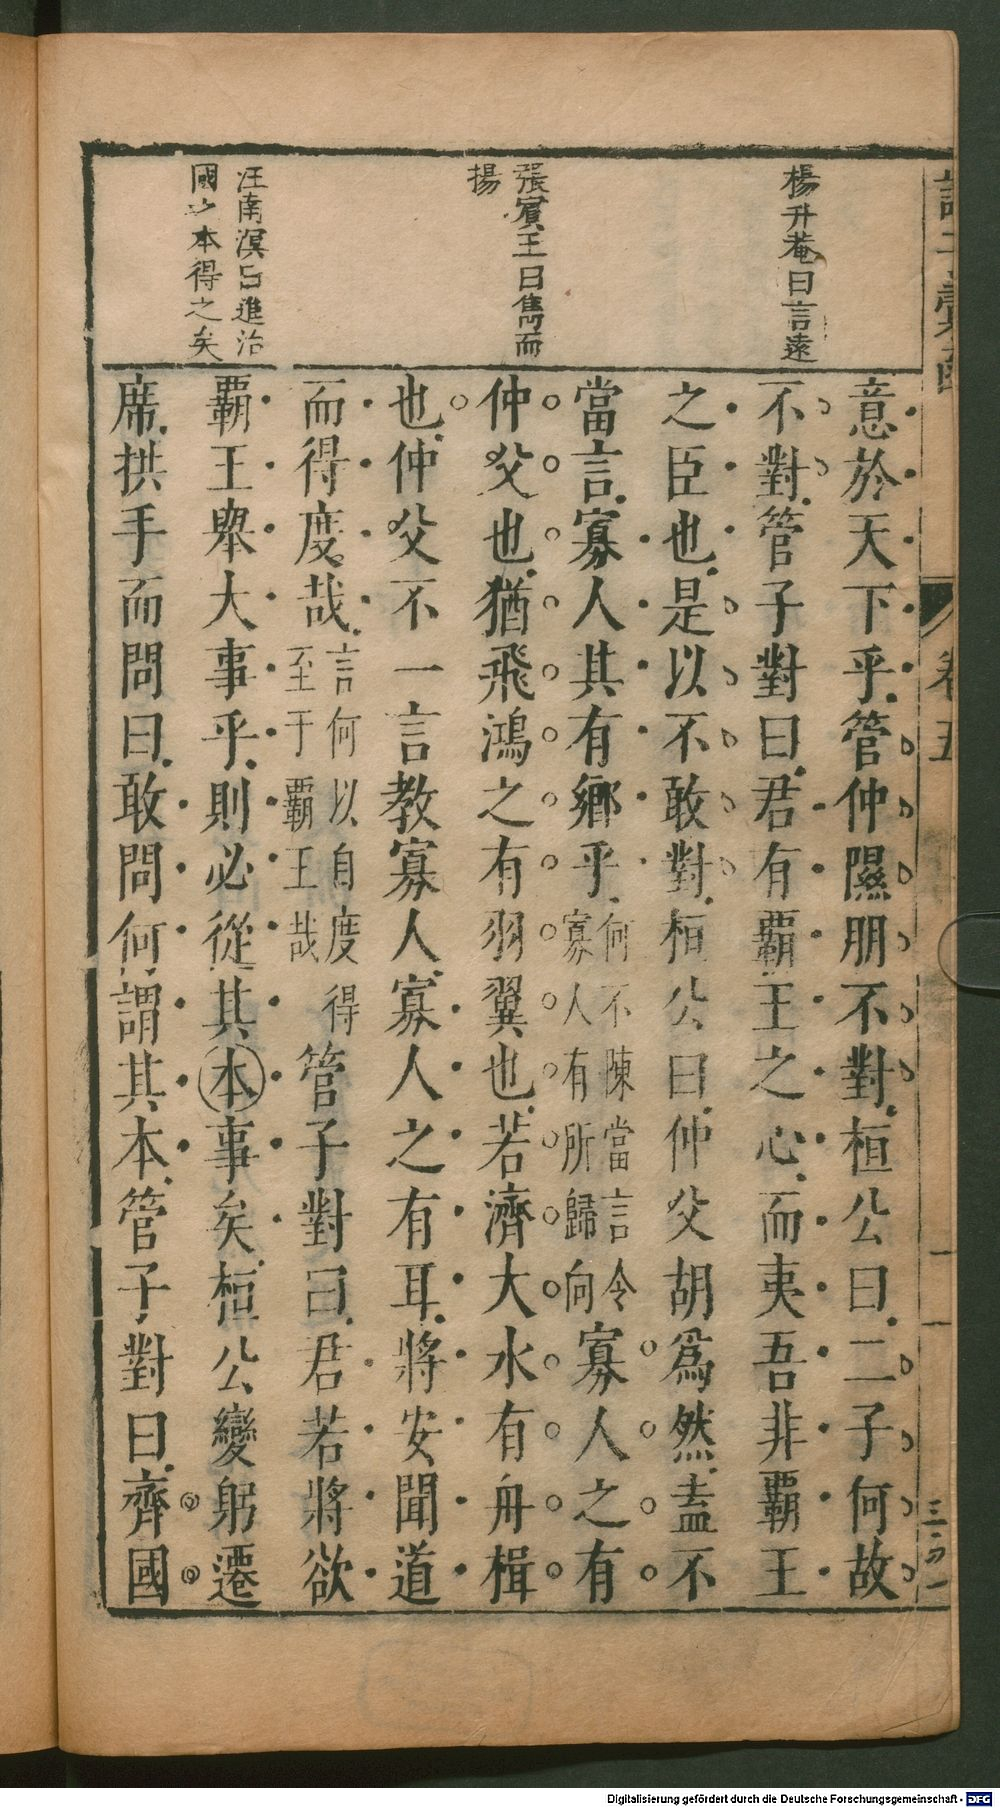 楊升菴曰言遠
張賓王曰雋而
揚
汪南溟曰進治
國之本得之矣
意於天下乎管仲隰朋不對桓公曰二子何故
不對管子對曰君有覇王之心而夷吾非覇王
之臣也是以不敢對桓公曰仲父胡爲然盍不
當言寡人其有鄉乎何不陳當言令寡人有所歸向寡人之有
仲父也猶飛鴻之有羽翼也若濟大水有舟楫
也仲父不一言教寡人寡人之有耳將安聞道
而得度哉言何以自度得至于覇王哉管子對曰君若將欲
覇王舉大事乎則必從其本事矣桓公變躬遷
席拱手而問曰敢問何謂其本管子對曰齊國
卷五
Digitalisierung gefördert durch die Deutsche Forschungsgemeinschaft - DFG